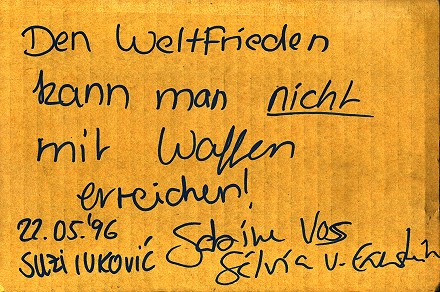 Den Weltfrieden
kann man nicht
mit Waffen
erreichen!
22.05.'96 Sabine Voss
SUZI IVKOVIĆ Silvia v.